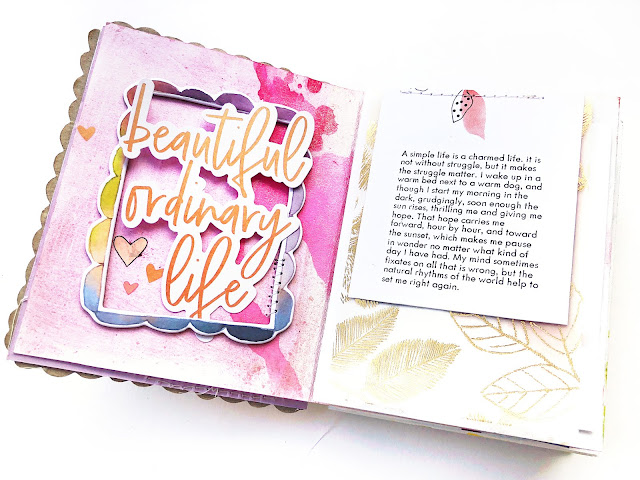 beautiful
ordinary
life
A simple life is a charmed life. it is
not without struggle, but it makes
the struggle matter. I wake up in a
warm bed next to a warm dog, and
though I start my morning in the
dark, grudgingly, soon enough the
sun rises, thrilling me and giving me
hope. That hope carries me
forward, hour by hour, and toward
the sunset, which makes me pause
in wonder no matter what kind of
day I have had. My mind sometimes
fixates on all that is wrong, but the
natural rhythms of the world help to
set me right again.